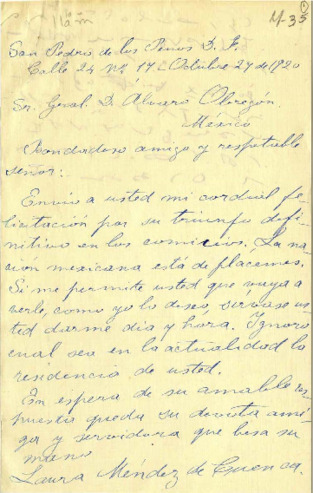 M-35
San Pedro de los Pinos D. F.
Calle 24 Nº 17 - Octubre 27 de 1920
Sr. Gral. D. Álvaro Obregón.
México
Bondadoso amigo y respetable
señor:
Envío a usted mi cordial fe-
licitación por su triunfo defi-
nitivo en los comicios. La na-
ción mexicana está de plácemes.
Si me permite usted que vaya a
verle, como yo lo deseo sírvase us-
ted darme día y hora. Ignoro
cual sea en la actualidad la
residencia de usted.
En espera de su amable res-
puesta queda su devota ami-
ga y servidora que besa su
mano
Laura Méndez de Cuenca.